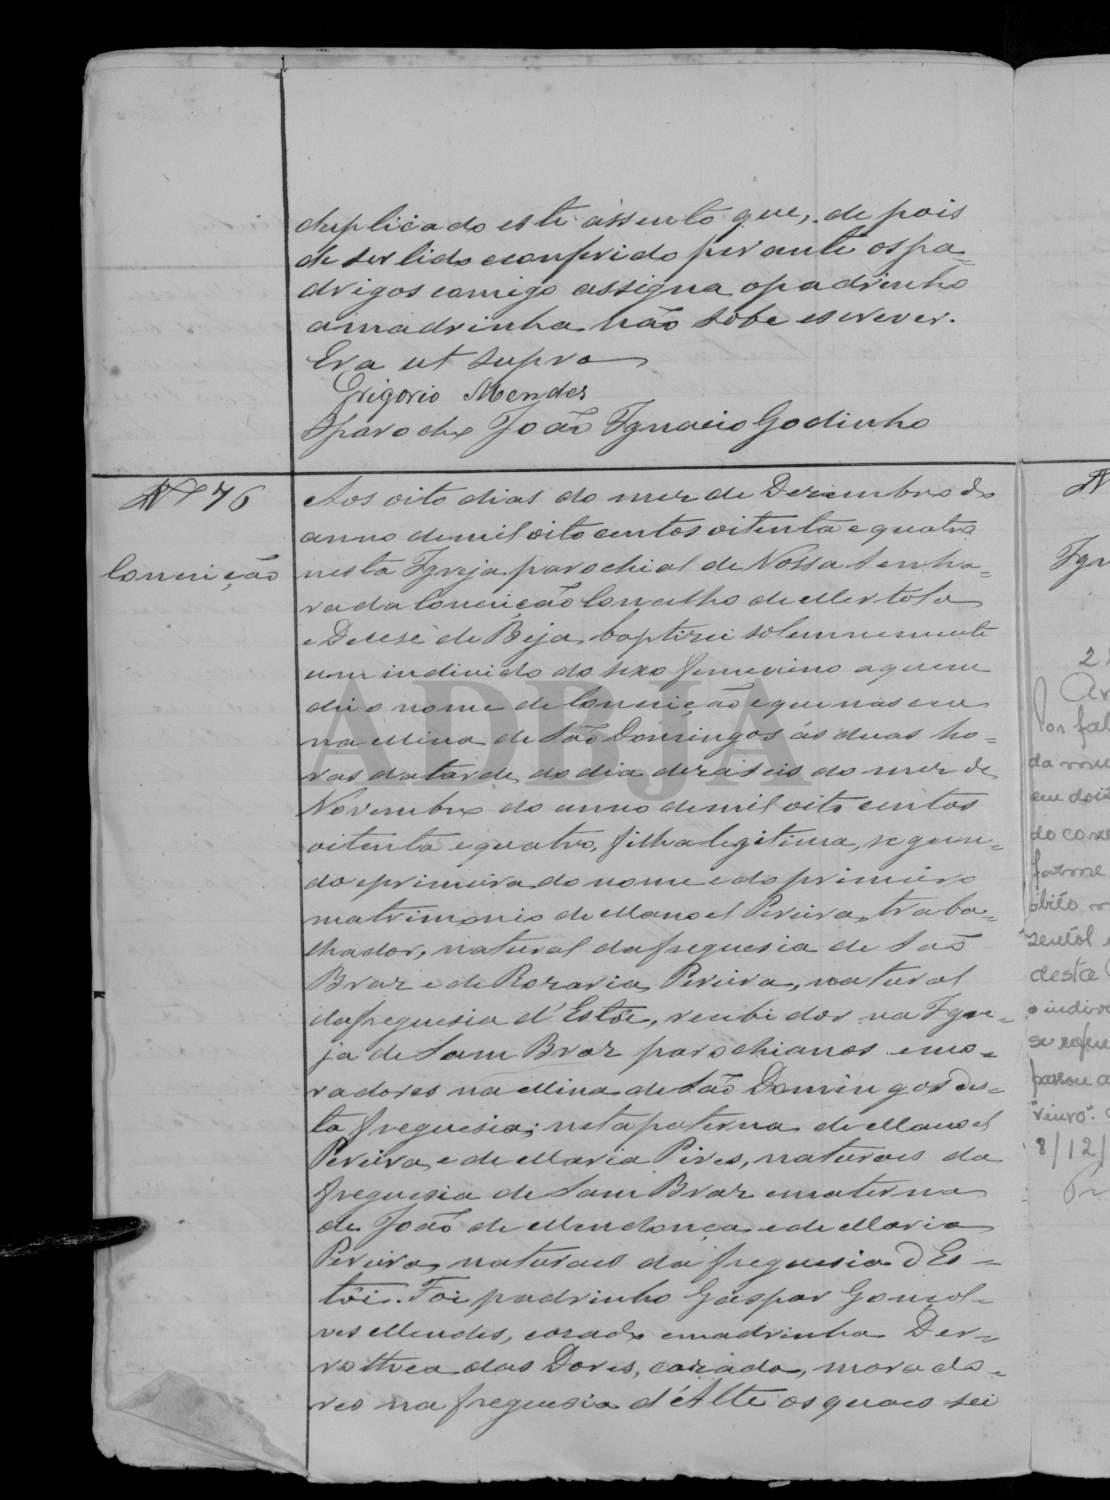 duplicado este assento que, de pois
de ser lido e conferido perante os pa-
drigos comigo assigna o padrinho
a madrinha não sabe escrever.
Era ut supra
Grigorio Mendes
O parocho João Ignacio Godinho
Nº 76
Conceição
Aos oito dias do mez de Dezembro do
anno de mil oito centos oitenta e quatro
nesta Igreja parochial de Nossa Senho-
ra da Conceição Concelho de Mertola
e Deucese de Beja, baptizei solemnemente
um individo do sexo femenino a quem
dei o nome de Conceição e que nasceu
na Mina de São Domingos ás duas ho-
ras da tarde do dia dezaseis do mez de
Novembro do anno de mil oito centos
oitenta e quatro, filha legitima, segun-
do e primeira do nome e do primeiro
matrimonio de Manoel Pereira, traba-
lhador, natural da freguesia de São
Braz e de Rozaria Pereira, natural
da freguesia d'Estôi, recebidos na Igre-
ja de Sam Braz parochianos e mo-
radores na Mina de São Domingos des-
ta freguesia; neta paterna de Manoel
Pereira e de Maria Pires, naturaes da
freguesia de Sam Braz e materna
de João de Mendonça e de Maria
Pereira, naturaes da freguesia d'Es-
tôi. Foi padrinho Gaspar Gonçal-
ves Mendes, cazado e madrinha Der-
rothea das Dores, cazada, morado-
res na freguesia d'Alte os quaes sei
ADBJA
N
Ign
Por fal
da
em dois
do
óbito
desta
o indiv
se refe
passou a
8/12/